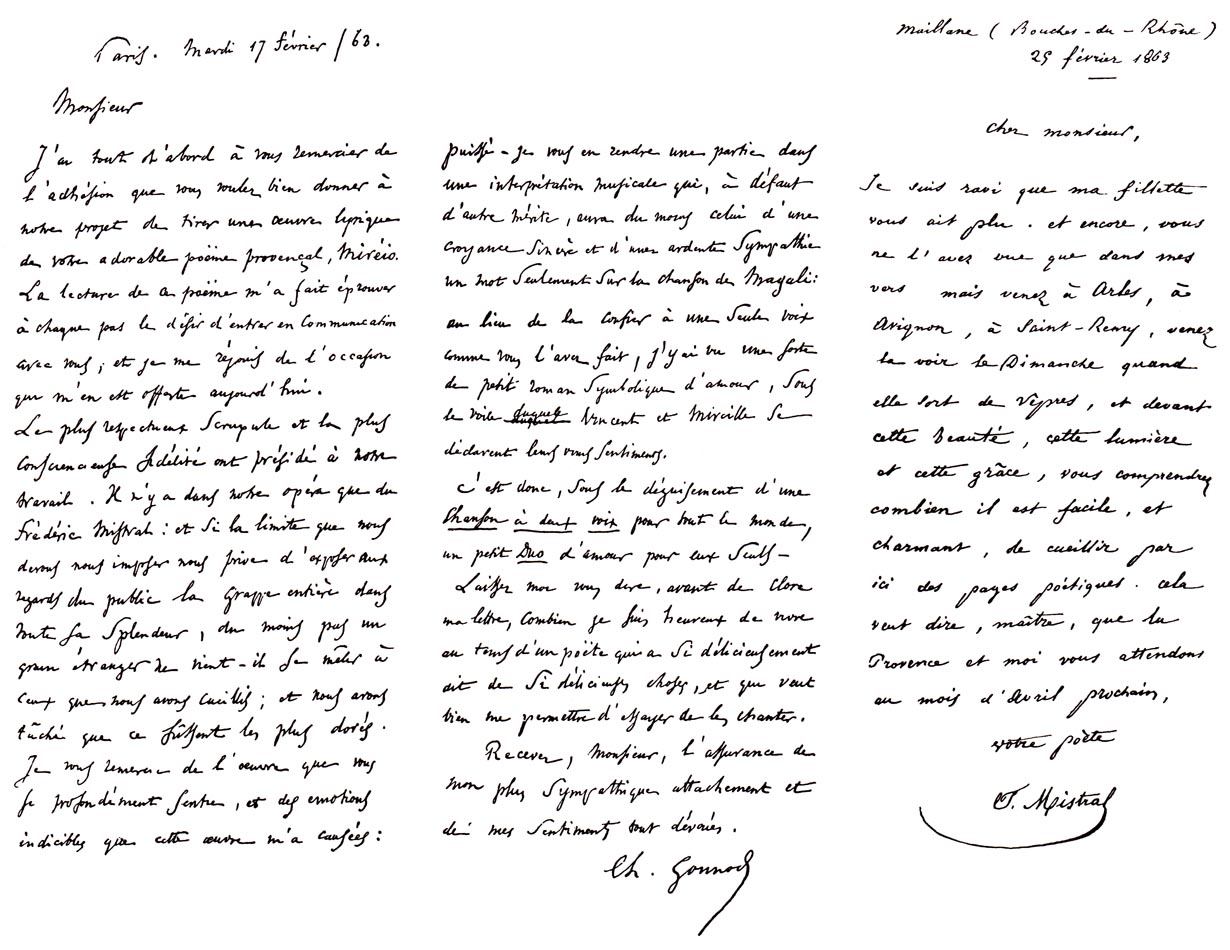 Paris. Mardi 17 février / 63.
Monsieur
J'ai tout d'abord à vous remercier de
l'adhésion que vous voulez bien donner à
notre projet de tirer une œuvre lyrique
de votre adorable poëme provençal, Miréio.
La lecture de ce poëme m'a fait éprouver
à chaque pas le désir d'entrer en communication
avec vous ; et je me réjouis de l'occasion
qui m'en est offerte aujourd'hui.
Le plus respectueux scrupule et la plus
consciencieuse fidélité ont présidé à notre
travail. Il n'y a dans notre opéra que du
Frédéric Mistral : et si la limite que nous
devons nous imposer nous prive d'exposer aux
regards du public la grappe entière dans
toute sa splendeur, du moins pas un
grain étranger ne vient-il se mêler à
ceux que nous avons cueillis ; et nous avons
tâché que ce fussent les plus dorés.
Je vous remercie de l'œuvre que vous
si profondément sentie, et des emotions
indicibles que cette œuvre m'a causées :
puissé-je vous en rendre une partie dans
une interprétation musicale qui, à défaut
d'autre mérite, aura du moins celui d'une
croyance sincère et d'une ardente sympathie
un mot seulement sur la chanson de Magali :
au lieu de la confier à une seule voix
comme vous l'avez fait, j'y ai vu une sorte
de petit roman symbolique d'amour, sous
le voile duquel Vincent et Mireille se
déclarent leurs vrais sentiments.
C'est donc, sous le déguisement d'une
Chanson à deux voix pour tout le monde,
un petit Duo d'amour pour eux seuls -
Laissez moi vous dire, avant de clore
ma lettre, combien je suis heureux de vivre
au tems d'un poëte qui a si délicieusement
dit de si délicieuses choses, et qui veut
bien me permettre d'essayer de les chanter.
Recevez, Monsieur, l'assurance de
mon plus sympathique attachement et
de mes sentiments tout dévoués.
Ch. Gounod
Maillane (Bouches-du-Rhône)
25 février 1863
Cher monsieur,
Je suis ravi que ma fillette
vous ait plu. et encore, vous
ne l'avez vue que dans mes
vers mais venez à Arles, à
Avignon, à Saint-Remy, venez
la voir le Dimanche quand
elle sort de vêpres, et devant
cette beauté, cette lumière
et cette grâce, vous comprendrez
combien il est facile, et
charmant, de cueillir par
ici des pages poëtiques. cela
veut dire, maître, que la
Provence et moi vous attendons
au mois d'Avril prochain,
votre poëte
F. Mistral